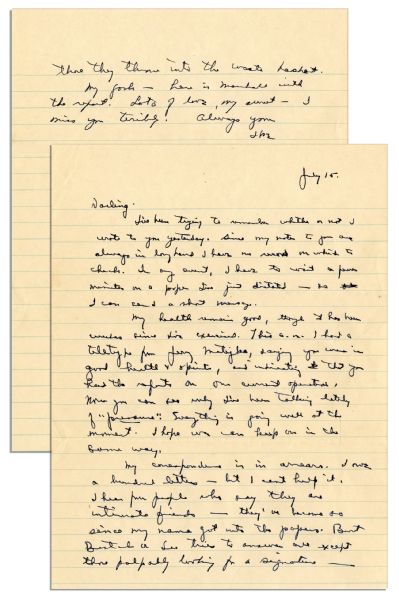 those they throw into the waste basket.
My gosh — here is Marshall with
the report. Lots of love, my sweet — I
miss you terribly. Always your
Ike
July 15.
Darling.
I've been trying to remember whether or not I
wrote to you yesterday. Since my notes to you are
always in longhand I have no record on which to
check. In any event, I have to wait a few
minutes on a paper I've just dictated — so
I can send a short message.
My health remains good, though it has been
weeks since I've exercised. This a.m. I had a
teletype from saying you were in
good health & spirits, and indicating that you
had the reports on our current operations.
Now you can see why I've been talking lately
of "pressure". Everything is going well at the
moment. I hope we can keep on in the
same way.
My correspondence is in arrears. I owe
a hundred letters — but I can't help it.
I hear from people who say they are
intimate friends — they've become so
since my name got into the papers. But
Butch & Lee tries to answer all except
those palpably looking for a signature —